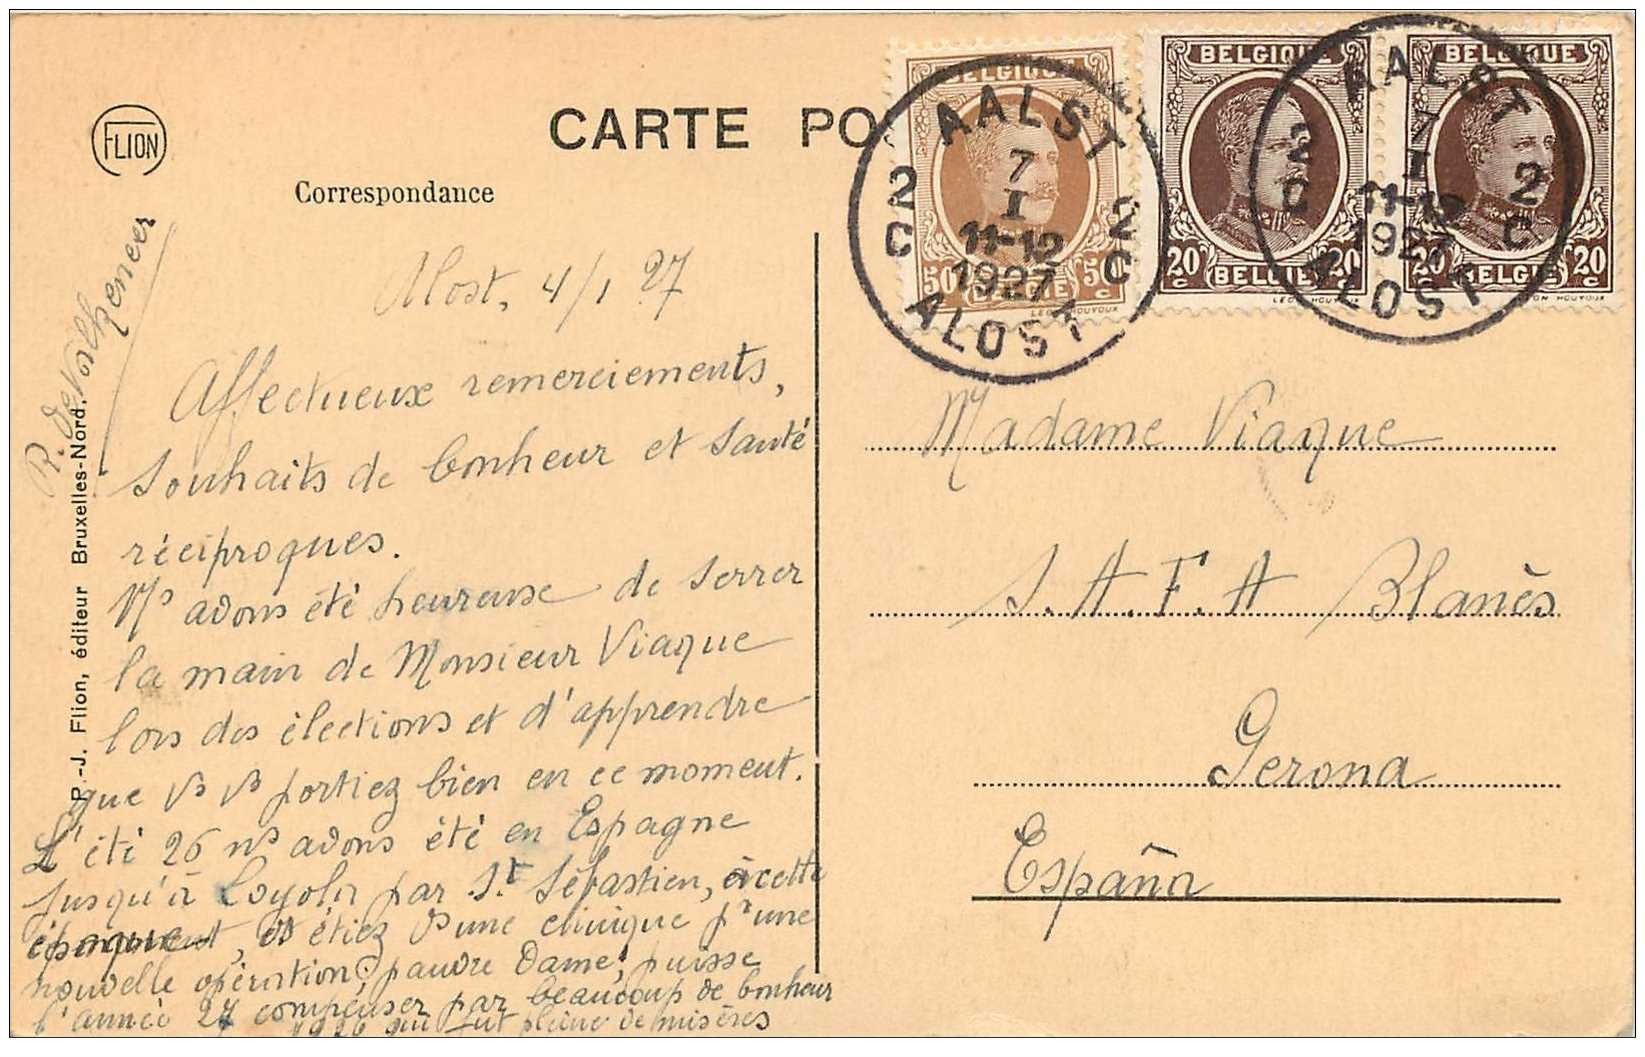 FLION
CARTE PO
Correspondance
BELGIQUE
50 c
50 c
BELGIË
LEON HOUYOUX
BELGIQUE
20 c
20 c
BELGIË
LEON HOUYOUX
BELGIQUE
20 c
20 c
BELGIË
LEON HOUYOUX
AALST
2 C
7
I
11-12
1927
2 C
ALOST
AALST
2 C
7
I
11-12
1927
2 C
ALOST
P.-J. Flion, éditeur Bruxelles-Nord.
Alost, 4/1 27
Affectueux remerciements,
souhaits de bonheur et santé
réciproques.
Ns avons été heureuse de serrer
la main de Monsieur Viaque
lors des élections et d'apprendre
que vs vs portiez bien en ce moment.
L'été 26 ns avons été en Espagne
jusqu'à Loyola par St Sébastien, à cette
époque, vs étiez ds une clinique pr une
nouvelle opération, pauvre Dame! puisse
l'année 27 compenser par beaucoup de bonheur
1926 qui fut pleine de misères
Madame Viaque
S.A.F.A Blanès
Gerona
España